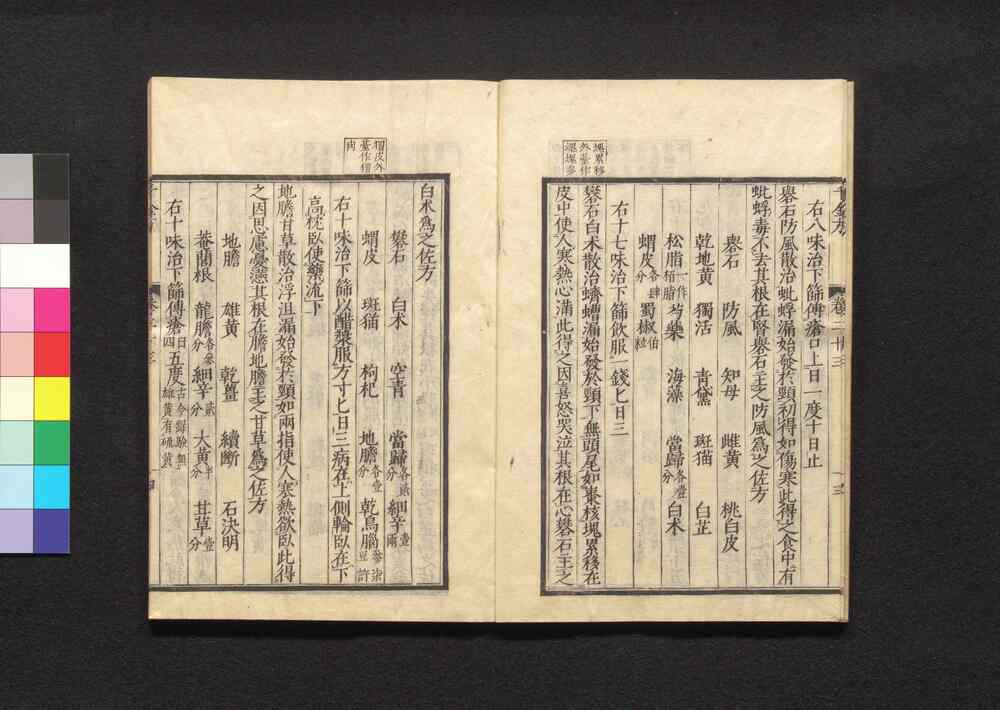 塊累移
外臺作
右八味治下篩傅瘡口上日一度十日止
礜石防風散治蚍蜉漏始發於頸初得如傷寒此得之食中有
蚍蜉毒不去其根在腎礜石主之防風爲之佐方
礜石 防風 知母 雌黃 桃白皮
乾地黃 獨活 青黛 斑猫 白芷
松脂一作栢脂 芎藭 海藻 當歸各壹分 白朮
蝟皮各肆分 蜀椒伯粒
右十七味治下篩飲服一錢匕日三
礬石白朮散治蠐螬漏始發於頸下無頭尾如棗核塊累移在
皮中使人寒熱心滿此得之因喜怒哭泣其根在心礬石主之
猬皮外
臺作猬
肉
白朮爲之佐方
礬石 白朮 空青 當歸各貳分 細辛壹兩
蝟皮 斑猫 枸杞 地膽各壹分 乾烏腦叁柒豆許
右十味治下篩以醋漿服方寸匕日三病在上側輪臥在下
高枕臥使藥流下
地膽甘草散治浮沮漏始發於頸如兩指使人寒熱欲臥此得
之因思慮憂懣其根在膽地膽主之甘草爲之佐方
地膽 雄黃 乾薑 續斷 石決明
菴䕡根 龍膽各叁分 細辛貳分 大黃半分 甘草壹分
右十味治下篩傅瘡日四五度古今錄驗無雄黃有硫黃